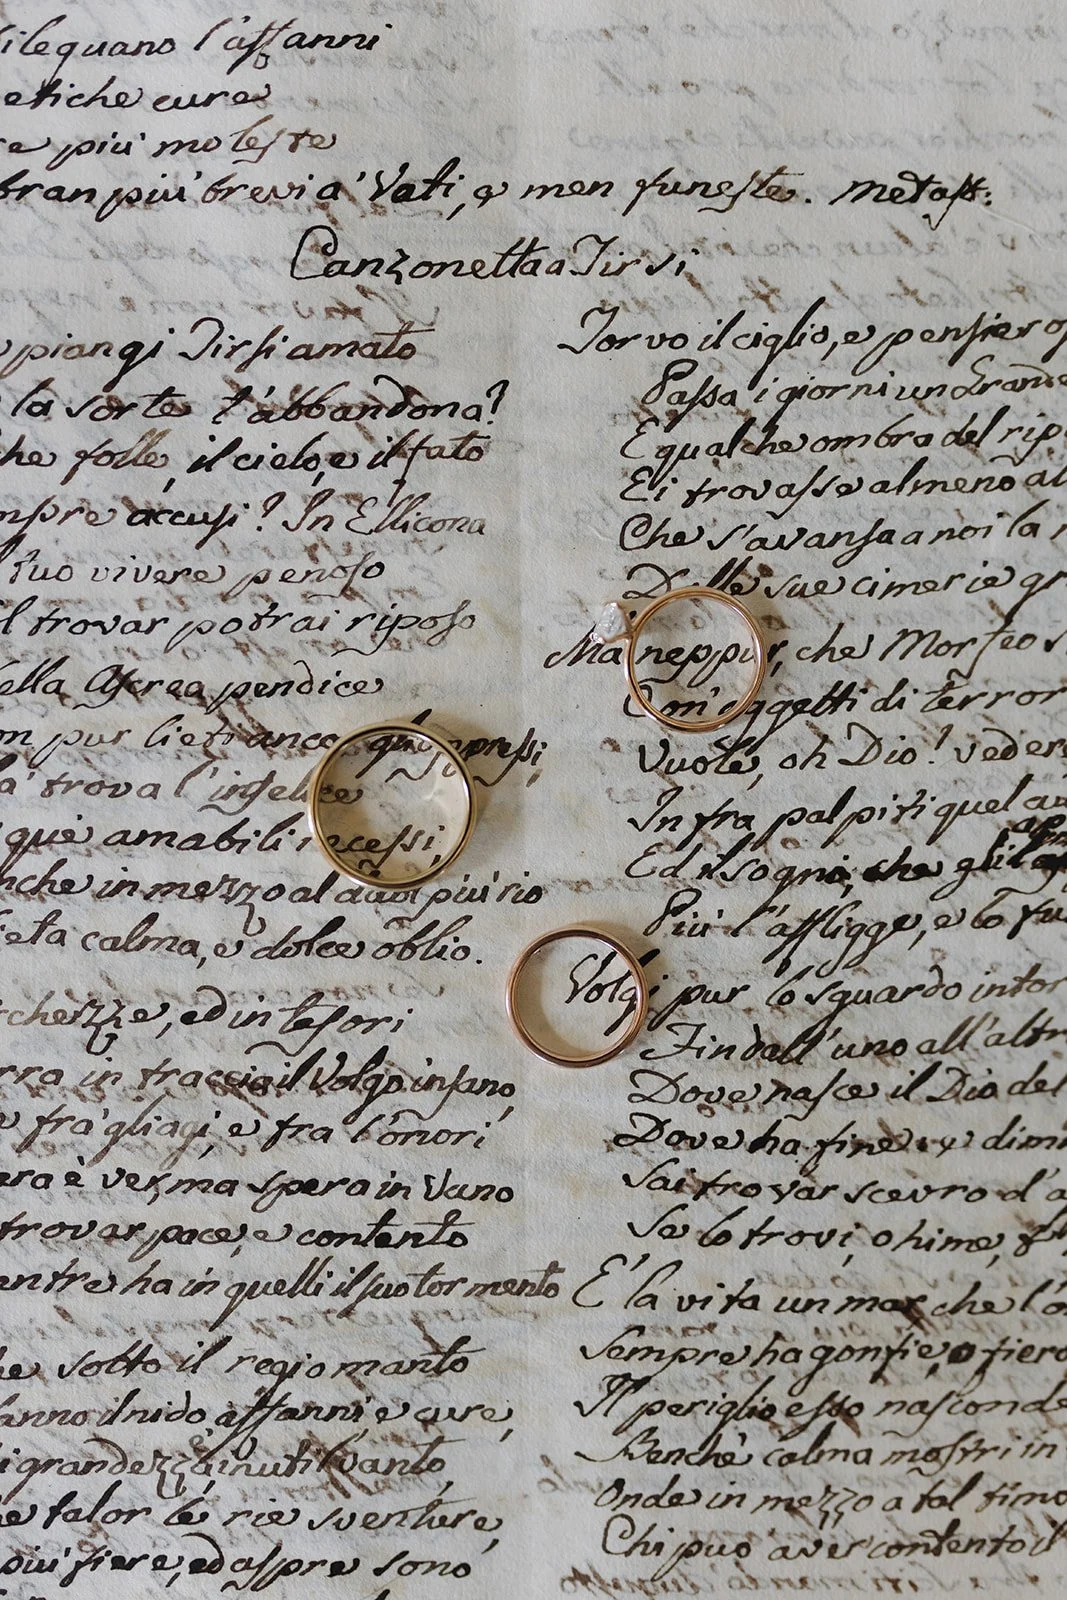 ileguano l'affanni
etiche cure
e più moleste
bran più brevi a' Vati, e men funeste. Metast:
Canzonetta a Tirsi
piangi Tirsi amato
la sorte t'abbandona?
he folle, il cielo, e il fato
mpre accusi? In Ellicona
tuo vivere penoso
l trovar potrai riposo
ella Ascrea pendice
m pur lieti anco
à trova l'infelice
i que amabili recessi,
nche in mezzo al duol più rio
ieta calma, e dolce oblio.
cchezze, ed in tesori
rra in traccia il Volgo insano,
fra gli agi, e fra l'onori
era è ver, ma spera in Vano
trovar pace, e contento
entre ha in quelli il suo tormento
he sotto il regio manto
anno il nido affanni, e cure,
i grandezza inutil vanto,
e talor le rie sventure,
più fiere, ed aspre sono
Torvo il ciglio, e pensieros
Passa i giorni un Grande
E qual che ombra del rip
Ei trovasse almeno al
Che s'avansa a noi la
Dalle sue cimerie gr
Ma neppur, che Morfeo s
Con oggetti di terror
Vuole, oh Dio! veder
In fra palpiti quel
Ed il sogno, che gli
Più l'affligge, e lo fu
Volgi pur lo sguardo intor
Fin dall'uno all'altr
Dove nasce il Dio del
Dove ha fine, e dimi
Sai trovar scevro d'a
Se lo trovi, ohime, f
E' la vita un mar che l'o
Sempre ha gonfie, o fiero
Il periglio esso nasconde
Benchè calma mostri in
Onde in mezzo a tal timo
Chi può aver contento il